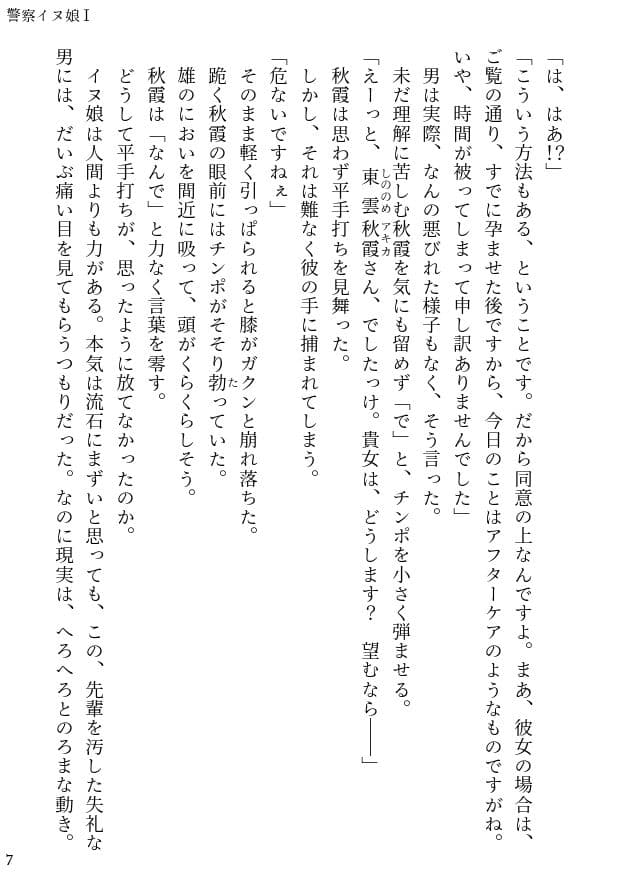 警察イヌ娘Ⅰ
「は、はあ!?」
「こういう方法もある、ということです。だから同意の上なんですよ。まあ、彼女の場合は、
ご覧の通り、すでに孕ませた後ですから、今日のことはアフターケアのようなものですがね。
いや、時間が被ってしまって申し訳ありませんでした」
男は実際、なんの悪びれた様子もなく、そう言った。
未だ理解に苦しむ秋霞を気にも留めず「で」と、チンポを小さく弾ませる。
「えーっと、東雲秋霞さん、でしたっけ。貴女は、どうします？　望むなら――」
しののめ アキカ
秋霞は思わず平手打ちを見舞った。
しかし、それは難なく彼の手に捕まれてしまう。
「危ないですねぇ」
そのまま軽く引っぱられると膝がガクンと崩れ落ちた。
跪く秋霞の眼前にはチンポがそそり勃っていた。
た
雄のにおいを間近に吸って、頭がくらくらしそう。
秋霞は「なんで」と力なく言葉を零す。
どうして平手打ちが、思ったように放てなかったのか。
イヌ娘は人間よりも力がある。本気は流石にまずいと思っても、この、先輩を汚した失礼な
男には、だいぶ痛い目を見てもらうつもりだった。なのに現実は、へろへろとのろまな動き。
7